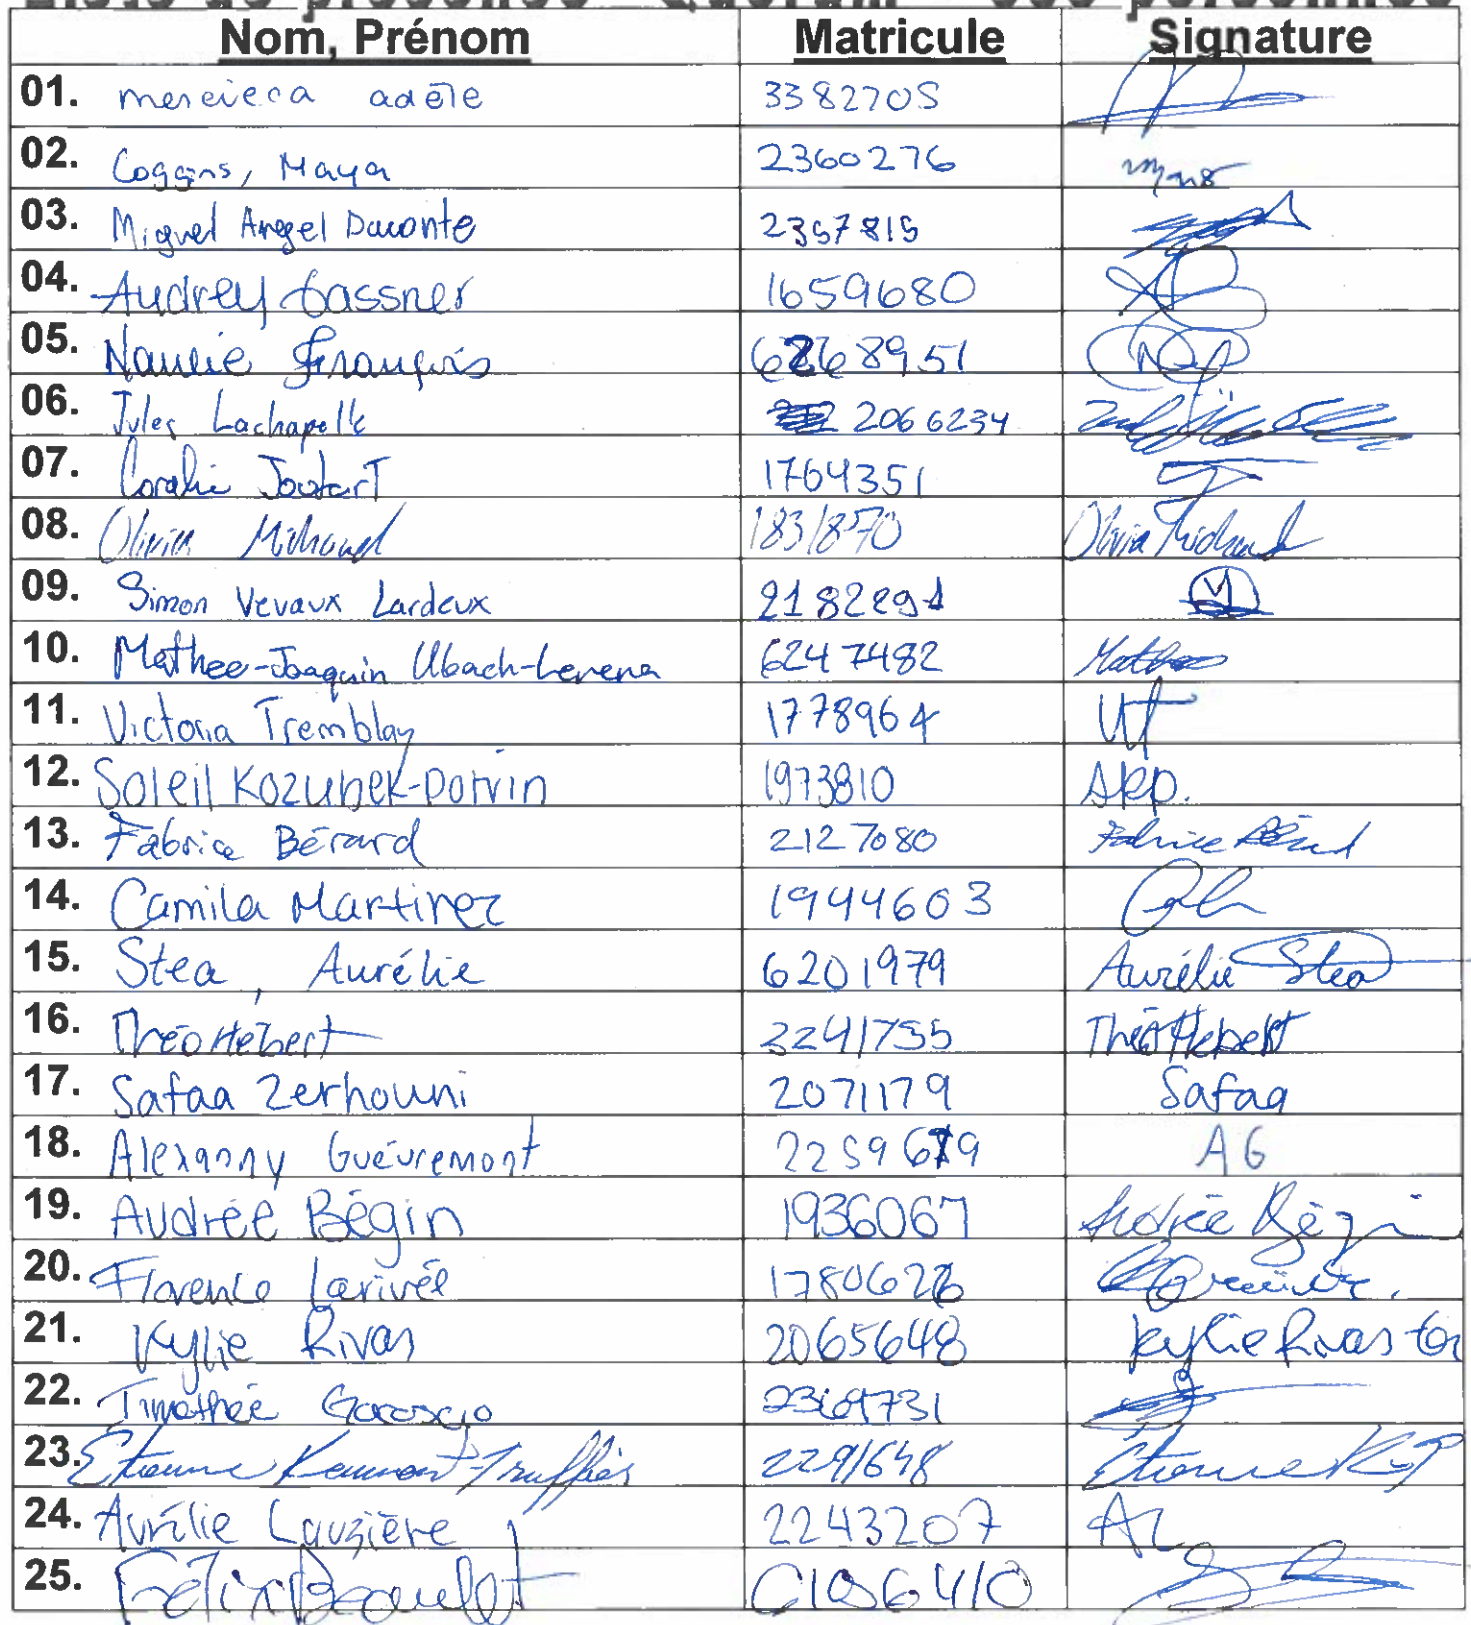 Liste de présence - Quorum - personnes
Nom, Prénom Matricule Signature
01. adèle 3382705
02. Coggins, Maya 2360276
03. Miguel Angel Daconte 2357815
04. Audrey Gassner 1659680
05. François
06. Jules Lachapelle 2066234
07. Coralie Joutart 1764351
08. Olivia Michaud 1831870 Olivia Michaud
09. Simon Vevaux Lardeux 2182291
10. Mathee-Joaquin Ubach- 6247482
11. Victoria Tremblay 1778964 VT
12. Soleil Kozubek-Potvin 1973810 SKP.
13. Fabrice Bérard 2127080 Fabrice Bérard
14. Camila Martinez 1944603
15. Stea, Aurélie 6201979 Aurélie Stea
16. Théo Hébert 2241755 Théo Hébert
17. Safaa Zerhouni 2071179 Safaa
18. Alexanny Guévremont AG
19. Audrée Bégin 1936067 Audrée Bégin
20. Florence Larivée
21. Kylie Rivas 2065648 Kylie Rivas
22. Timothée
23. Étienne 2291648 Étienne
24. Aurélie Lauzière 2243207 AL
25. Félix